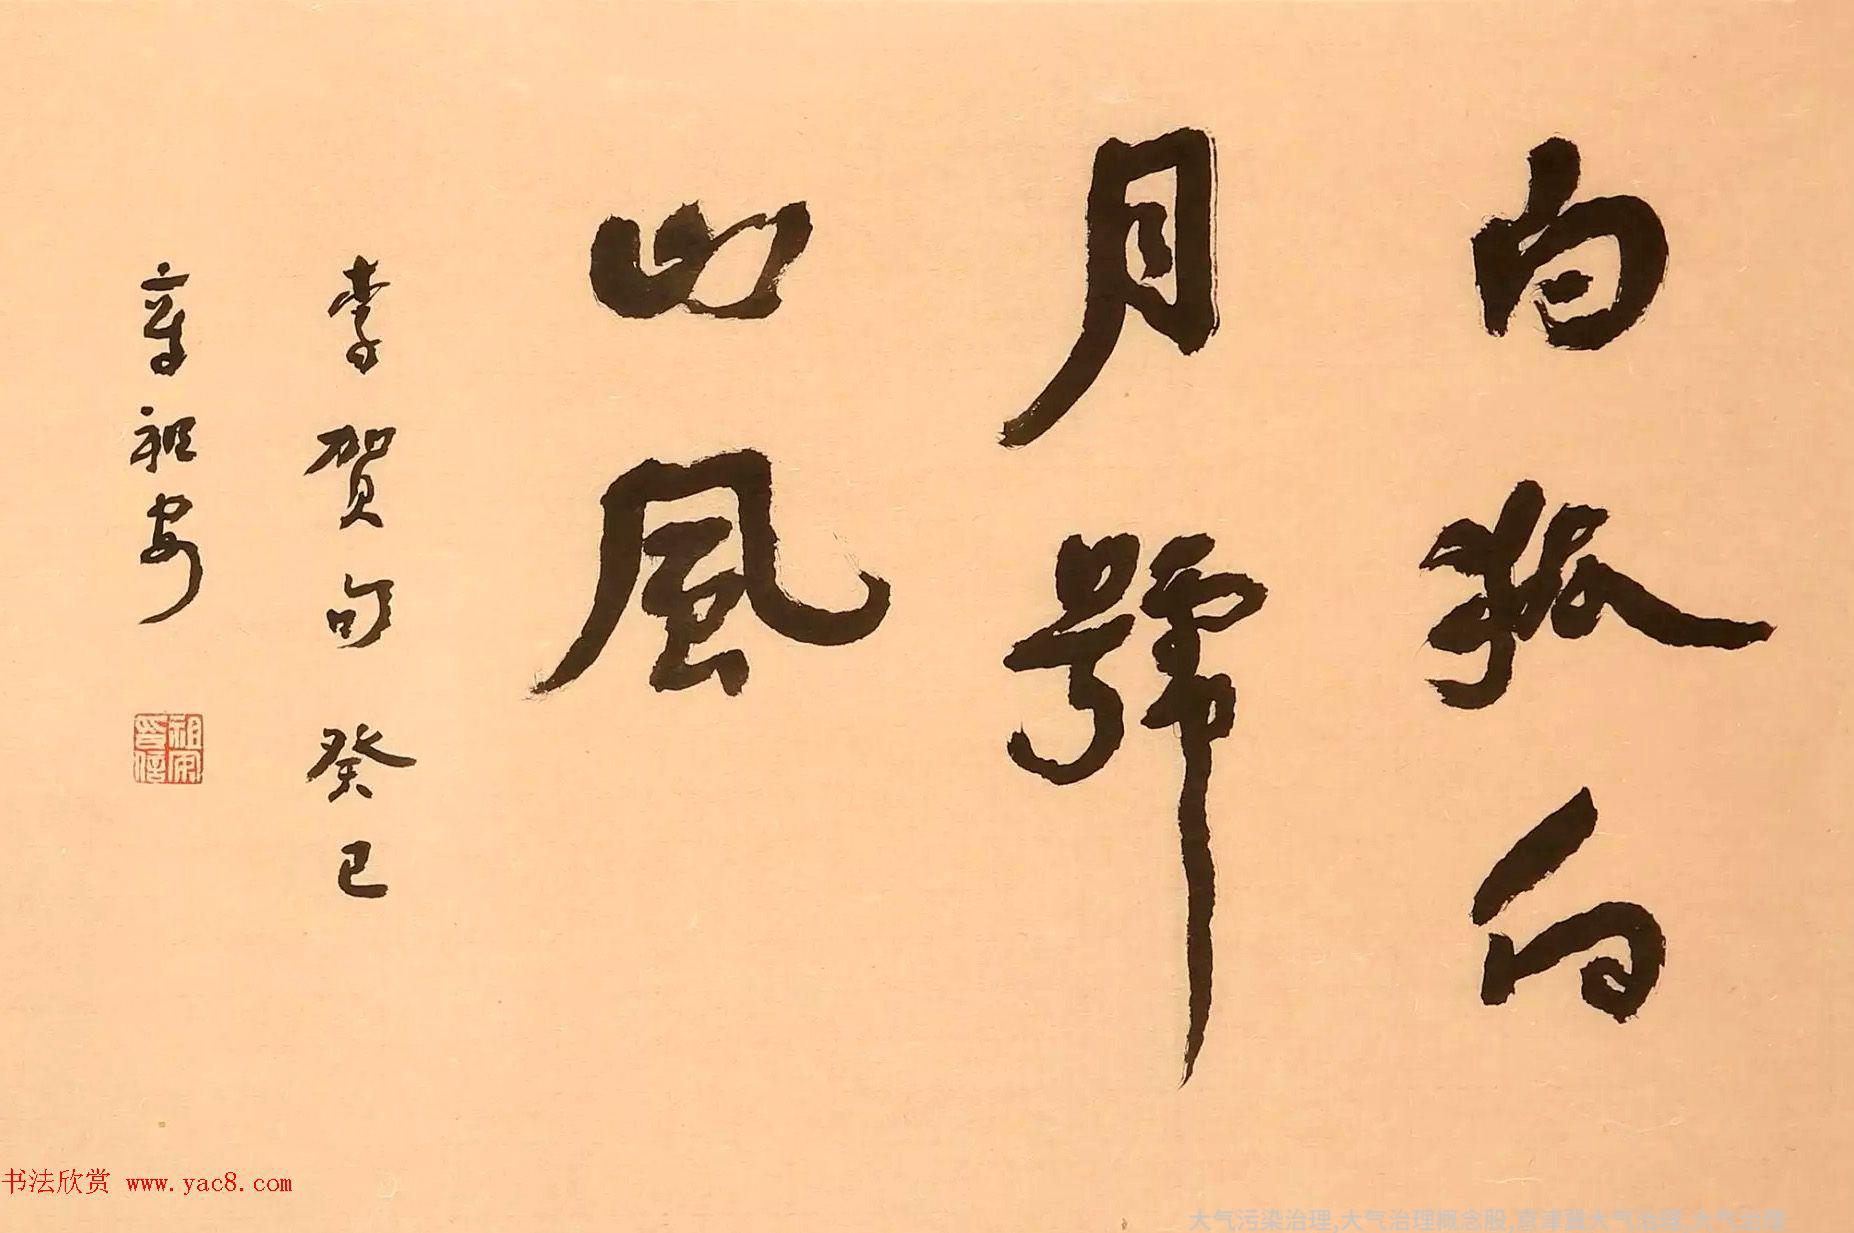 白狐向
月號
山風
李賀句癸巳
章祖安
祖安
印信
书法欣赏 www.yac8.com
大气污染治理,大气治理概念股,京津冀大气治理,大气治理